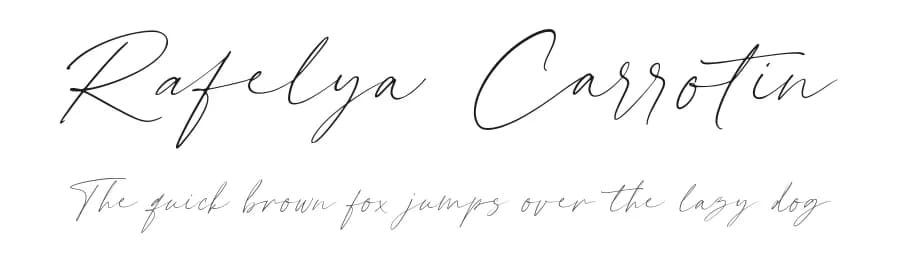 Rafelya Carrotin
The quick brown fox jumps over the lazy dog